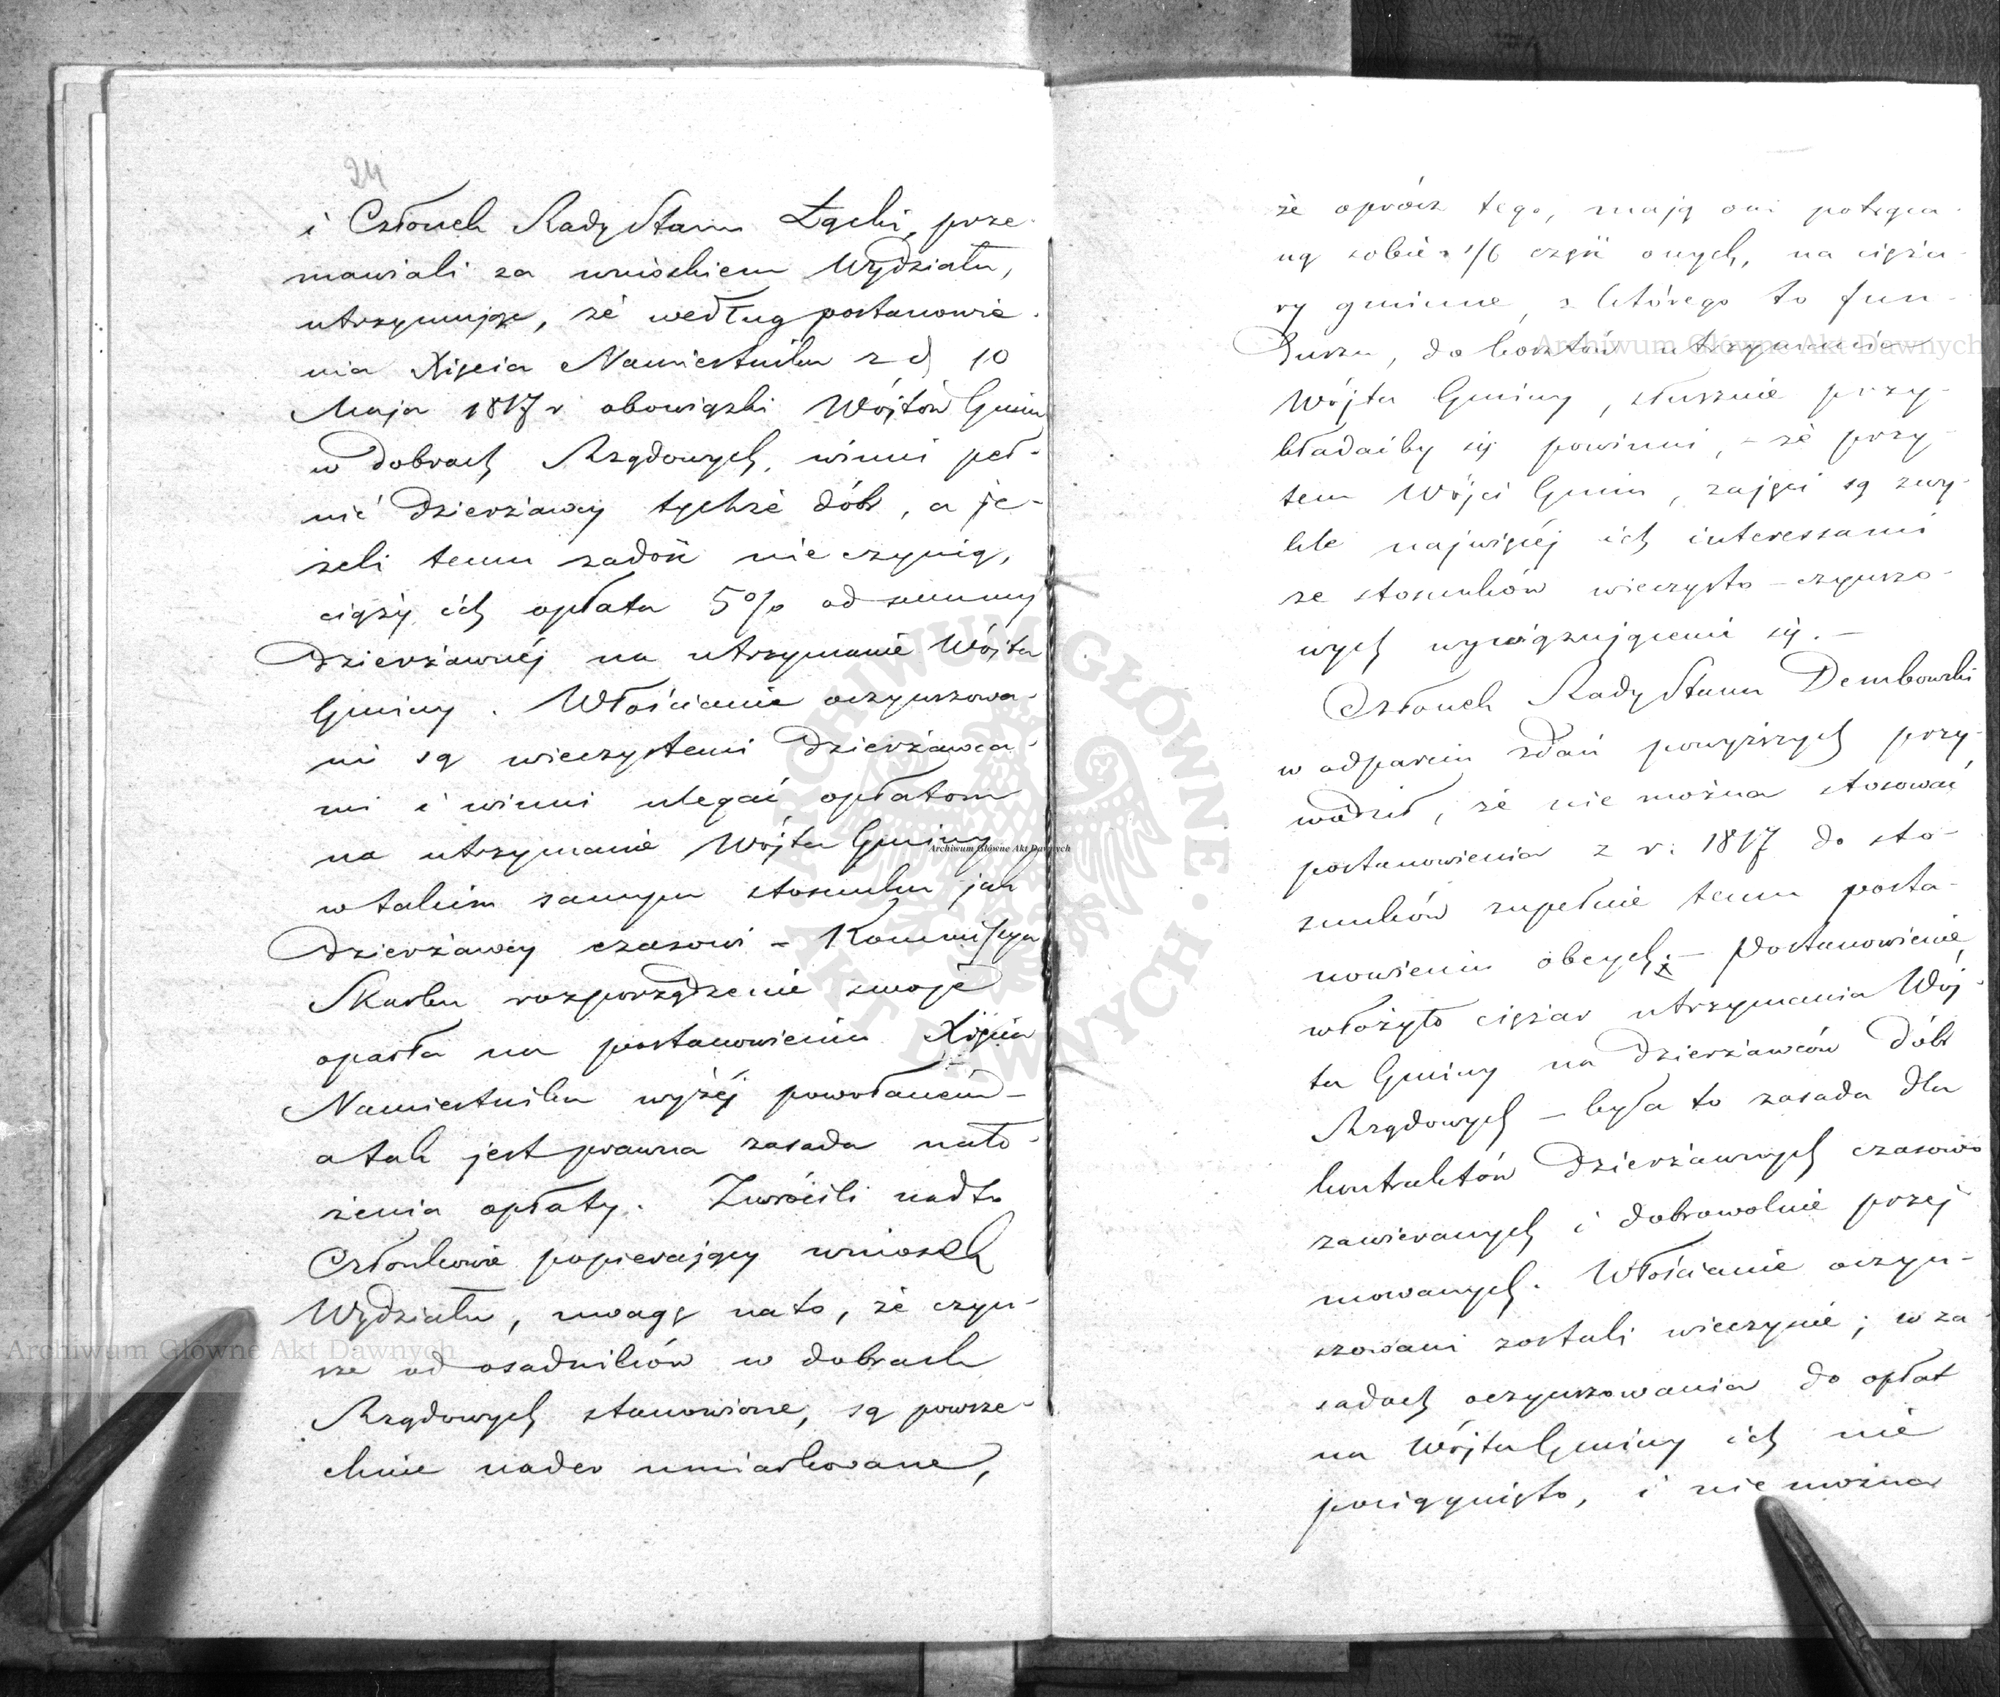 24
i Członek Rady Stanu Łęcki, prze-
mawiali za wnioskiem Wydziału,
utrzymując, że według postanowie-
nia Xięcia Namiestnika z d 10
Maja 1817 r obowiązki Wójtów Gmin
w dobrach Rządowych, winni peł-
nić dzierżawcy tychże dóbr, a je-
żeli temu zadość nie czynią,
ciąży ich opłata 5% od summy
dzierżawnéj na utrzymanie Wójta
Gminy. Włościanie oczynszowa-
ni są wieczystemi dzierżawca-
mi i winni ulegać opłatom
na utrzymanie Wójta Gminy
w takim samym stosunku jak
dzierżawcy czasowi – Kommissya
Skarbu rozporządzenie swoje
oparła na postanowieniu Xięcia
Namiestnika wyżéj powołaném –
a tak jest prawna zasada nało-
żenia opłaty. Zwrócili nadto
Członkowie popierający wniosek
Wydziału, uwagę na to, że czyn-
sze od osadników w dobrach
Rządowych stanowione, są powsze-
chnie nader umiarkowane,
że oprócz tego, mają oni potrąca-
ną sobie 1/6 część onych, na cięża-
ry gminne, z którego to fun-
duszu, do kosztów utrzymania
Wójta Gminy, słusznie przy-
kładaćby się powinni, – że przy-
tem Wójci Gmin, zajęci są zwy-
kle najwięcéj ich interessami
ze stosunków wieczysto – czynszo-
wych wywiązującemi się. –
Członek Rady Stanu Dembowski
w odparciu zdań powyższych przy-
wodził, że nie można stosować
postanowienia z r. 1817 do sto-
sunków zupełnie temu posta-
nowieniu obcych; – Postanowienie
włożyło ciężar utrzymania Wój-
ta Gminy na dzierżawców dóbr
Rządowych – była to zasada dla
kontraktów dzierżawnych czasowo
zawieranych i dobrowolnie przej
mowanych. Włościanie oczyn-
szowani zostali wieczyście; w za-
sadach oczynszowania do opłat
na Wójta Gminy ich nie
pociągnięto, i nie można
Archiwum Główne Akt Dawnych
Archiwum Główne Akt Dawnych
Archiwum Główne Akt Dawnych
ARCHIWUM GŁÓWNE AKT DAWNYCH